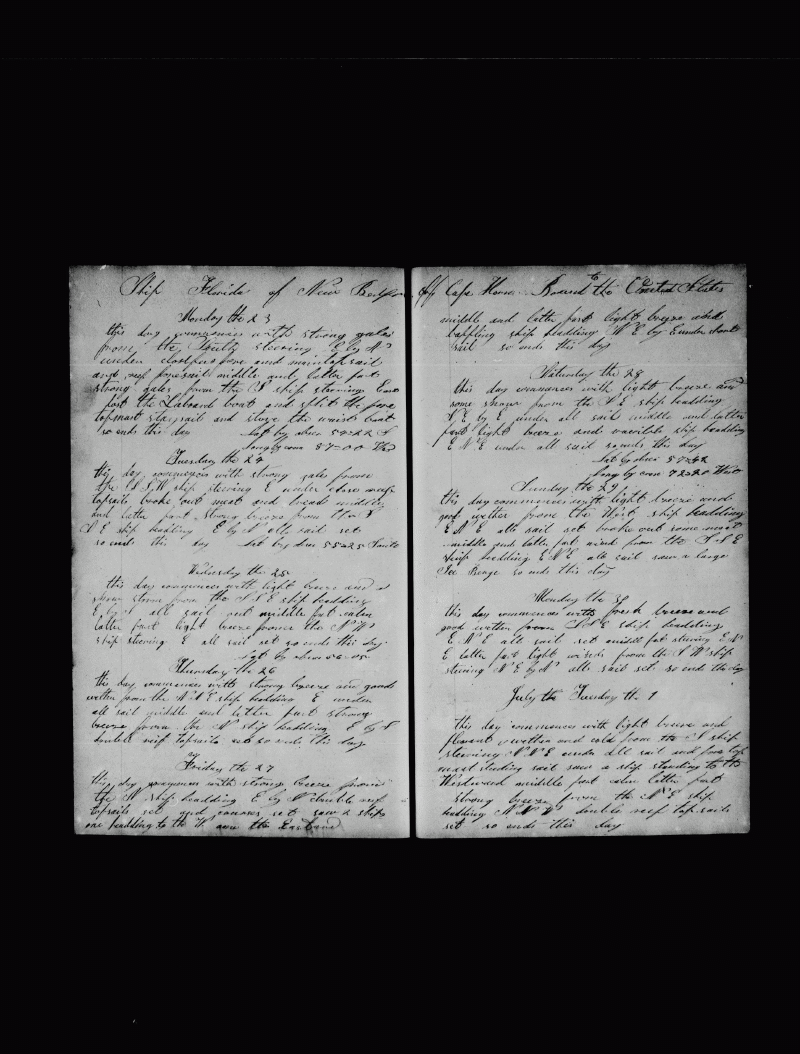 Ship Florida of New Bedford
Monday the 23
this day commences with strong gales
from the steering E by N
under close reef fore and main topsail
and reef foresail middle and latter part
strong gales from the S ship steering East
lost the Laboard boat and split the fore
topmast staysail and stove the waist boat
so ends this day Lat by obser 57=22 S
Long by cron 87=00 West
Tuesday the 24
this day commences with strong gales from
the S S W ship steering E under close reef
topsails broke out meat and bread middle
and latter part strong breeze from the
S E ship heading E by N all sail set
so ends this day Lat by obser 55=25 South
Wednesday the 25
this day commences with light breeze and a
snow storm from the S S E ship heading
E by N all sail out middle part calm
latter part light breeze from the N W
ship steering E all sail set so ends this day
Lat by obser 56=05
Thursday the 26
this day commences with strong breeze and good
wether from the N N E ship heading E under
all sail middle and latter part strong
breeze from the N ship heading E by S
double reef topsails set so ends this day
Friday the 27
this day commences with strong breeze from
the N ship heading E by N double reef
topsails set and courses set saw 2 ships
one heading to the W one the Eastward
off Cape Horn Bound to the United States
middle and latter part light breeze and
baffling ship heading N E by E under
sail so ends this day
Saturday the 28
this day commences with light breeze and
some snow from the S E ship heading
N E by E under all sail middle and latter
part light breeze and ship heading
E N E under all sail so ends this day
Lat by obser 57=42
Long by cron 72=20 West
Sunday the 29
this day commences with light breeze and
good wether from the West ship heading
E N E all sail set broke out some meat
middle and latter part wind from the S S E
ship heading E N E all sail saw a large
Ice Berge so ends this day
Monday the 30
this day commences with fresh breeze and
good wether from S S E ship heading
E N E all sail set middle part steering E N
E latter part light winds from the S W ship
steering N E by N all sail set so ends the day
July the Tuesday the 1
this day commences with light breeze and
pleasant wether and cold from the S ship
steering N N E under all sail and fore top
mast studing sail saw a ship standing to the
Westward middle part calm latter part
strong breeze from the N E ship
heading N N W double reef topsails
set so ends this day